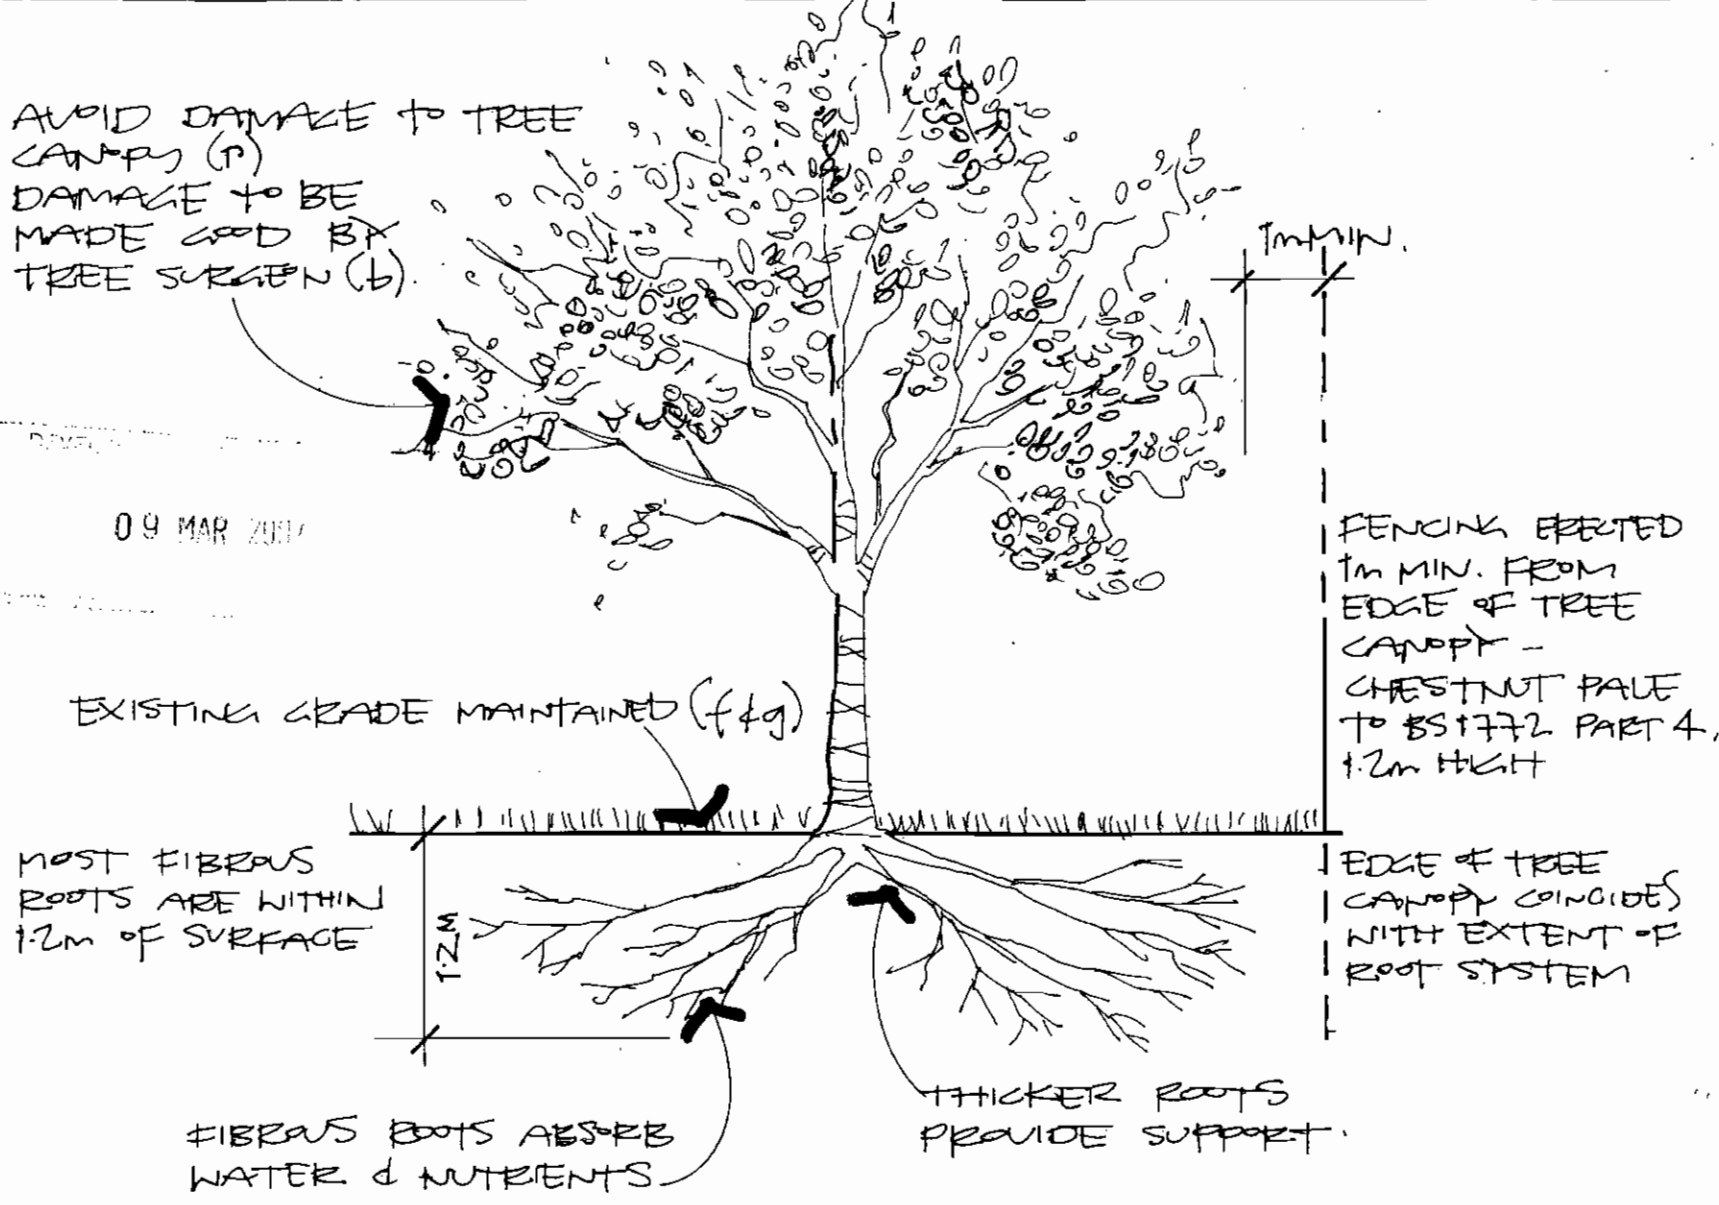 AVOID DAMAGE to TREE
CANOPY (P)
DAMAGE to BE
MADE GOOD BY
TREE SURGEN (b).
1m MIN.
09 MAR
FENCING ERECTED
1m MIN. FROM
EDGE OF TREE
CANOPY -
CHESTNUT PALE
TO BS1772 PART 4,
1.2m HIGH
EXISTING GRADE MAINTAINED (f & g)
MOST FIBROUS
ROOTS ARE WITHIN
1.2m OF SURFACE
1.2M
EDGE OF TREE
CANOPY COINCIDES
WITH EXTENT OF
ROOT SYSTEM
THICKER ROOTS
PROVIDE SUPPORT.
FIBROUS ROOTS ABSORB
WATER & NUTRIENTS